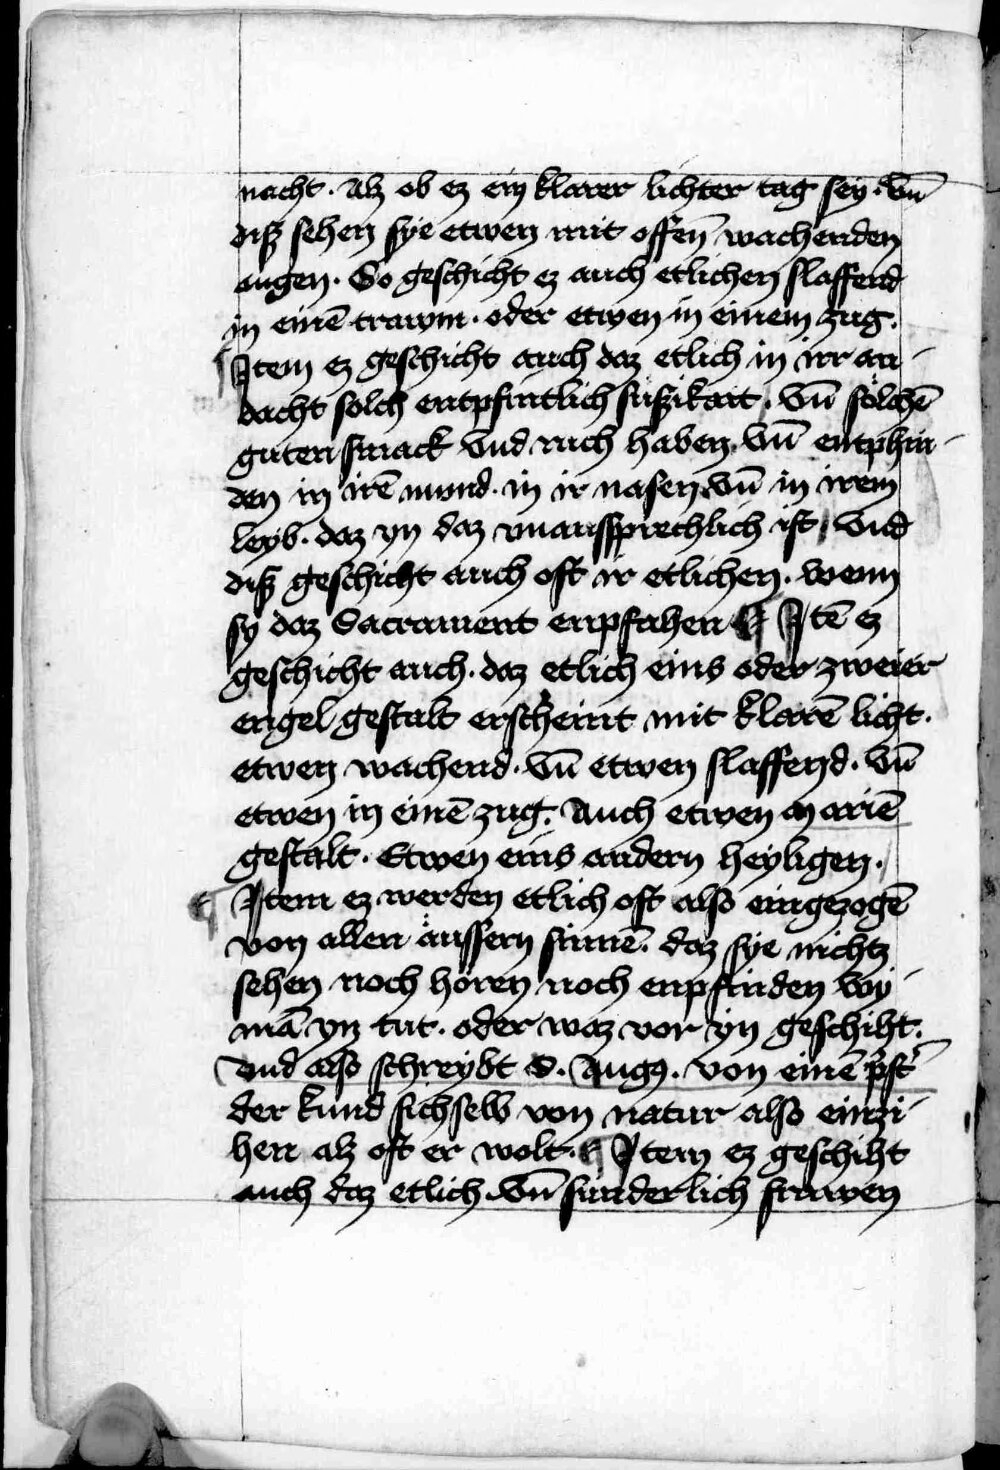 nacht. Alz ob ez ein klarer lichter tag sey. Vn̄
diß sehen sye etwen mit offen̄ wachenden
augen. So geschicht ez auch etlichen slaffend
in einē trawm. oder etwen in einem zug.
Item ez geschicht auch daz etlich in irr an-
dacht solch entpfintlich süßikait. Vn̄ sölchē
guten smack vnd ruch haben. Vn̄ entphin-
den in irē mund. in ir nasen. Vn̄ in irem
leyb. daz yn daz vnausprechlich ist. Vnd
diß geschicht auch oft ir etlichen. wenn
sy daz Sacrament enpfahen ¶ Itē ez
geschicht auch. daz etlich eins oder zweier
engel gestalt erscheint mit klarē licht.
etwen wachend. Vn̄ etwen slaffend. Vn̄
etwen in einē zug. Auch etwen mariē
gestalt. Etwen eins andern heyligen.
¶ Item ez werden etlich oft also eingezogē
von allen äussern sinnē. daz sye nichtz
sehen noch hören noch enpfinden wy-
mā yn tut. oder waz vor yn geschiht.
Vnd also schreybt S. Augꝰ. von einē pͥstͬ
der kund sichselb von natur also einzi-
hen alz oft er wolt. ¶ Item ez geschiht
auch daz etlich. Vn̄ sunderlich frawen